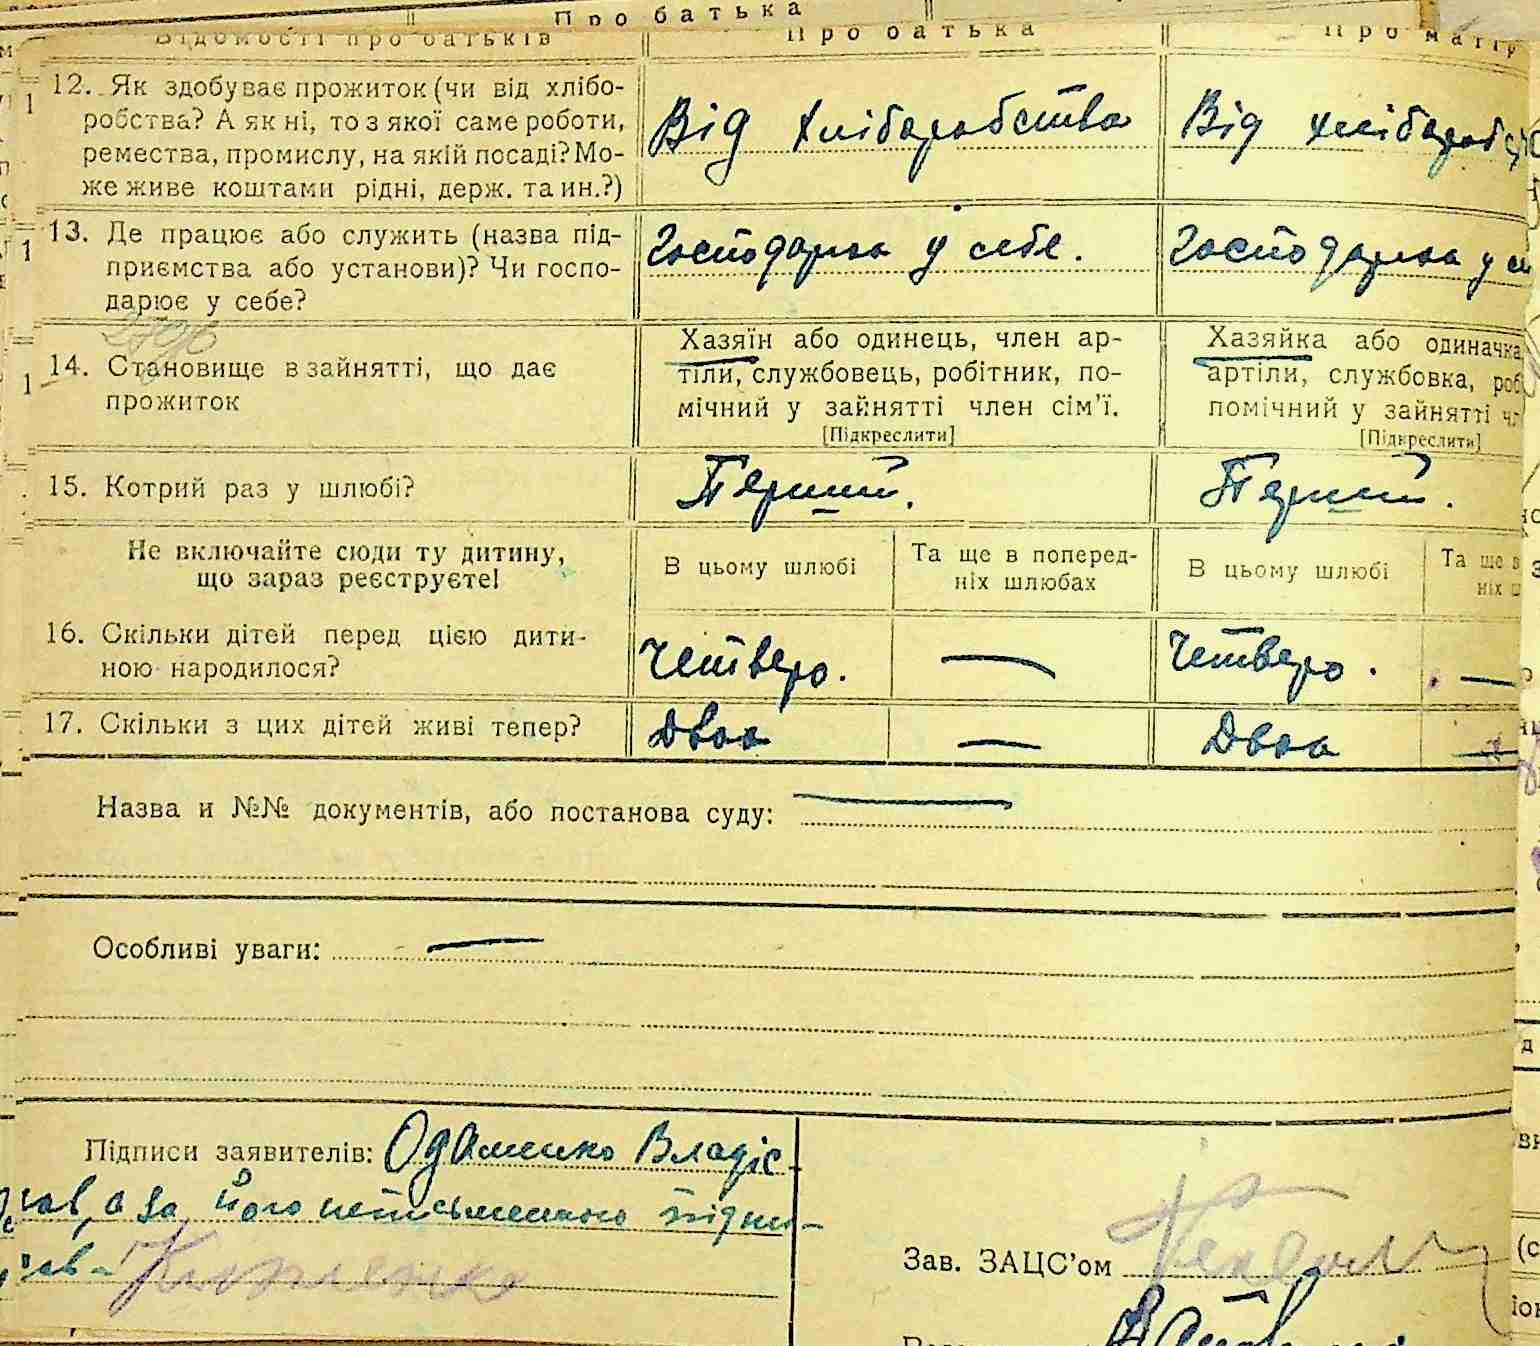 Про батька
Відомості про батьків Про батька Про матір
12. Як здобуває прожиток (чи від хлібо-
робства? А як ні, то з якої саме роботи,
ремества, промислу, на якій посаді? Мо-
же живе коштами рідні, держ. та ин.?)
Від хліборобства
Від хлібороб
13. Де працює або служить (назва під-
приємства або установи)? Чи госпо-
дарює у себе?
Господарює у себе.
Господарює у се
14. Становище в зайнятті, що дає
прожиток
Хазяїн або одинець, член ар-
тіли, службовець, робітник, по-
мічний у зайнятті член сім'ї.
[Підкреслити]
Хазяйка або одиначка
артіли, службовка, роб
помічний у зайнятті чл
[Підкреслити]
15. Котрий раз у шлюбі?
Перший.
Перший.
Не включайте сюди ту дитину,
що зараз реєструєте!
В цьому шлюбі
Та ще в поперед-
ніх шлюбах
В цьому шлюбі
Та ще в
ніх ш
16. Скільки дітей перед цією дити-
ною народилося?
Четверо. —
Четверо. —
17. Скільки з цих дітей живі тепер?
Двоє —
Двоє —
Назва и №№ документів, або постанова суду: —
Особливі уваги: —
Підписи заявителів: Одаменко Владіс-
лав, а за його неписьменного підпи-
сав -
Зав. ЗАЦС'ом